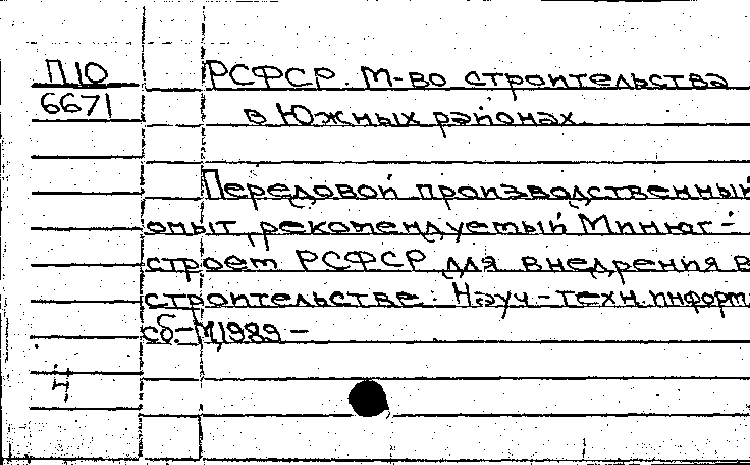 П10
6671
РСФСР. М-во строительства
в Южных районах.
Передовой производственный
опыт, рекомендуемый Минюг-
строем РСФСР для внедрения в
строительстве: Науч.-техн. информ.
сб.-М, 1989-
4